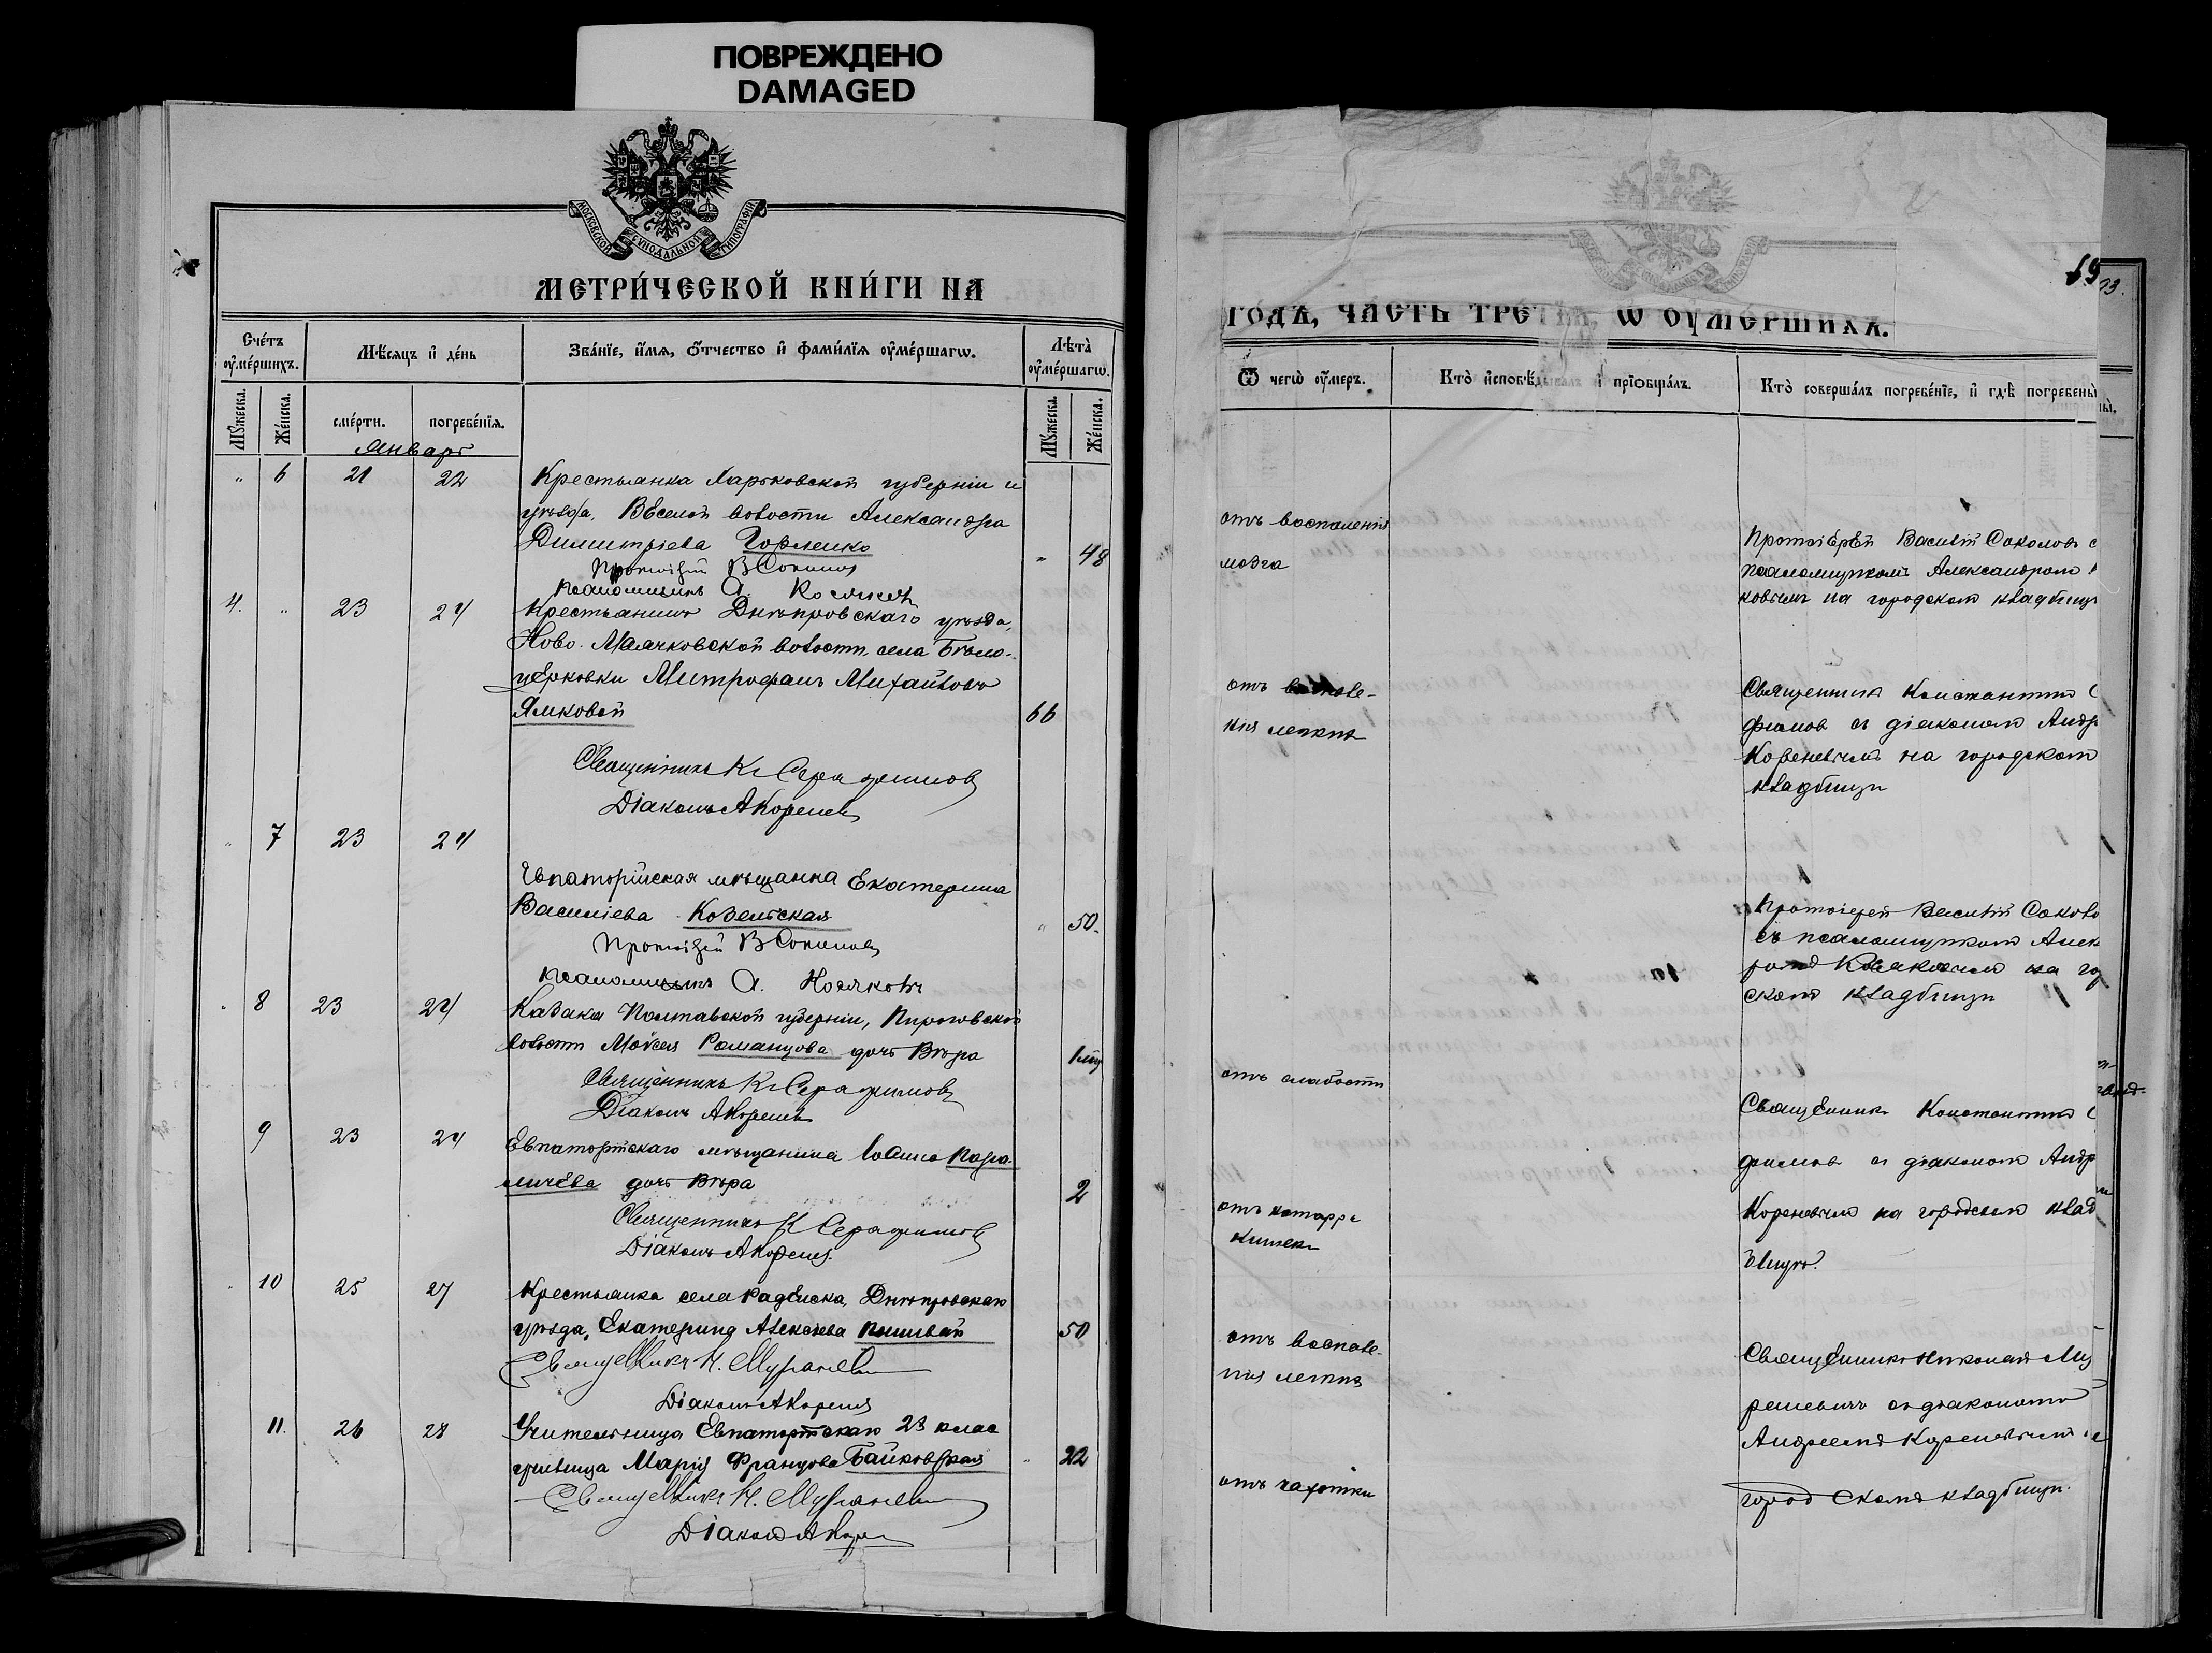 ПОВРЕЖДЕНО
DAMAGED
МОСКОВСКОЙ СѴНОДАЛЬНОЙ ТИПОГРАФІИ
МЕТРИ́ЧЕСКОЙ КНИ́ГИ НА
Сче́тъ ѹ҆ме́ршихъ.
Мѣ́сяцъ и҆ де́нь
Зва́нїе, и҆́мѧ, ѻ҆́тчество и҆ фами́лїѧ ѹ҆ме́ршагѡ.
Лѣ̀та ѹ҆ме́ршагѡ.
Мꙋ́жеска.
Же́нска.
сме́рти.
погребе́нїѧ.
Мꙋ́жеска.
Же́нска.
Январь
" 6 21 22 Крестьянка Харьковской губерніи и
уѣзда, Веселой волости Александра
Димитріева Горленко " 48
Протоіерей В Соколовъ
Псаломщикъ А. Косяковъ
4. " 23 24 Крестьянинъ Днѣпровскаго уѣзда,
Ново-Маячковской волости, села Бѣло-
церковки Митрофанъ Михайловъ
Ямковой 66
Священникъ К Серафимовъ
Діаконъ А Кореневъ
" 7 23 24
Евпаторійская мѣщанка Екатерина
Василіева Козельская " 50.
Протоіерей В Соколовъ
Псаломщикъ А. Косяковъ
" 8 23 24 Казака Полтавской губерніи, Пироговской
волости Моисея Романцова дочь Вѣра 1
Священникъ К Серафимовъ
Діаконъ А Кореневъ
9 23 24 Евпаторійскаго мѣщанина Іоанна
дочь Вѣра 2
Священникъ К Серафимовъ
Діаконъ А Кореневъ
" 10 25 27 Крестьянка села Раденска, Днѣпровскаго
уѣзда, Екатерина Алексіева 50
Священникъ Н.
Діаконъ А Кореневъ
11. 26 28 Учительница Евпаторійскаго 23 клас
училища Марія Францова Байковская " 22
Священникъ Н.
Діаконъ А
69
93.
ГО́ДЪ, ЧА́СТЬ ТРЕ́ТЬѦ, Ѡ ОУМЕ́РШИХЪ.
Ѿ чегѡ̀ ѹ҆́меръ.
Кто̀ и҆сповѣ́дывалъ и҆ прїѡбща́лъ.
Кто̀ соверша́лъ погребе́нїе, и҆ гдѣ̀ погребены̀
ны̀.
отъ воспаленія
мозга
Протоіерей Василій Соколовъ с
псаломщикомъ Александромъ К
ковымъ на городскомъ кладбищѣ
отъ воспале-
нія легкихъ
Священникъ Константинъ С
фимовъ съ діакономъ Андр
Кореневымъ на городскомъ
кладбищѣ
Протоіерей Василій Соколо
съ псаломщикомъ Алек
Косяковымъ на го
скомъ кладбищѣ
отъ слабости
Священникъ Константинъ С
фимовъ съ діакономъ Андр
Кореневымъ на городскомъ клад
бищѣ.
отъ катарра
кишекъ
отъ воспале-
нія легкихъ
Священникъ Николай Му
съ діакономъ
Андреемъ Кореневымъ
городскомъ кладбищѣ.
отъ чахотки